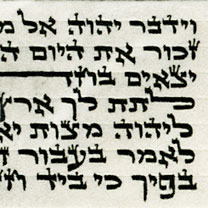 וידבר יהוה אל מ
זכור את היום ה
יצאים
לתת לך ארץ
ליהוה מצות יא
לאמר בעבור
בפיך כי ביד